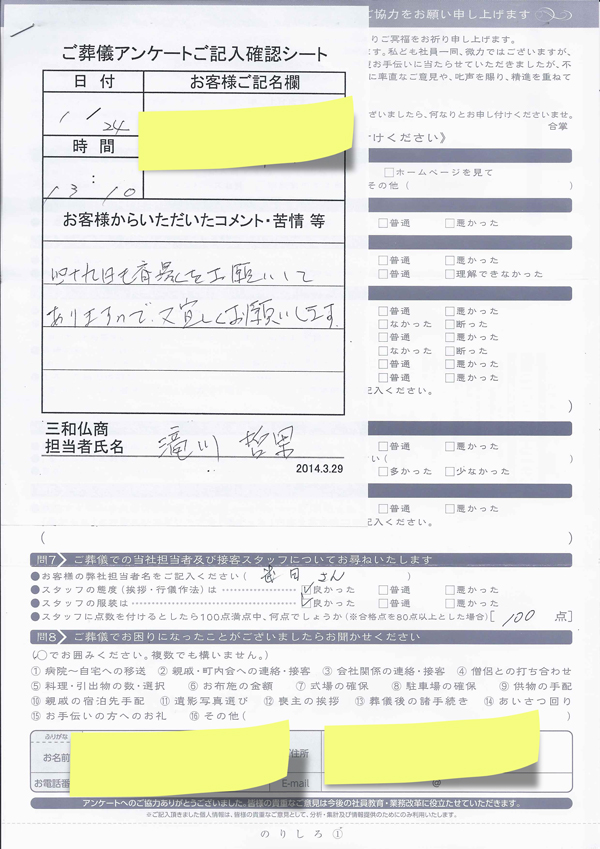 ご協力をお願い申し上げます
りご冥福をお祈り申し上げます。
す。私ども社員一同、微力ではございますが、
お手伝いに当たらせていただきましたが、不
に率直なご意見や、叱声を賜り、精進を重ねて
ざいましたら、何なりとお申し付けくださいませ。
合掌
けください》
□ホームページを見て
その他(
□普通 □悪かった
□普通 □悪かった
□普通 □理解できなかった
□普通 □悪かった
□なかった □断った
□普通 □悪かった
□なかった □断った
□普通 □悪かった
□普通 □悪かった
記入ください。
)
□普通 □悪かった
い( )
□多かった □少なかった
□普通 □悪かった
記入ください。
( )
ご葬儀アンケートご記入確認シート
日付 お客様ご記名欄
1/24
時間
13:10
お客様からいただいたコメント・苦情 等
四十九日も斉場くをお願いして
ありますので、又宜しくお願いします
三和仏商
担当者氏名 滝川 哲
2014.3.29
問7 ご葬儀での当社担当者及び接客スタッフについてお尋ねいたします
●お客様の弊社担当者名をご記入ください( 田さん )
●スタッフの態度(挨拶・行儀作法)は ☑良かった □普通 □悪かった
●スタッフの服装は ☑良かった □普通 □悪かった
●スタッフに点数を付けるとしたら100点満点中、何点でしょうか(※合格点を80点以上とした場合)[ 100 点]
問8 ご葬儀でお困りになったことがございましたらお聞かせください
(○でお囲みください。複数でも構いません。)
①病院~自宅への移送 ②親戚・町内会への連絡・接客 ③会社関係の連絡・接客 ④僧侶との打ち合わせ
⑤料理・引出物の数・選択 ⑥お布施の金額 ⑦式場の確保 ⑧駐車場の確保 ⑨供物の手配
⑩親戚の宿泊先手配 ⑪遺影写真選び ⑫喪主の挨拶 ⑬葬儀後の諸手続き ⑭あいさつ回り
⑮お手伝いの方へのお礼 ⑯その他( )
ふりがな
お名前 住所
お電話番 E-mail @
アンケートへのご協力ありがとうございました。皆様の貴重なご意見は今後の社員教育・業務改革に役立たせていただきます。
※ご記入頂きました個人情報は、皆様の貴重なご意見として、分析・集計及び情報提供のためにのみ利用いたします。
のりしろ①